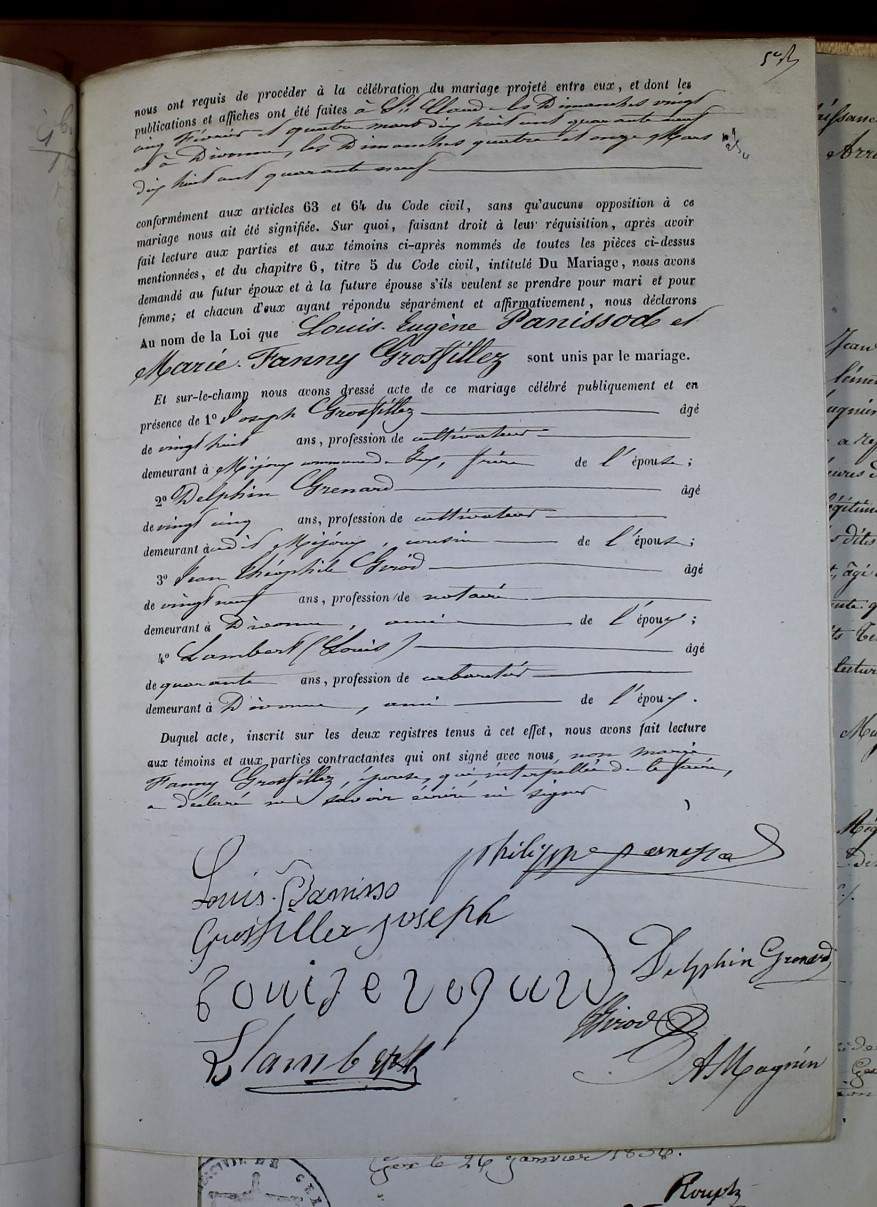 nous ont requis de procéder à la célébration du mariage projeté entre eux, et dont les
publications et affiches ont été faites à St. Claude les Dimanches vingt
cinq Février et quatre mars dix huit cent quarante neuf
et à Divonne, les Dimanches quatre et onze Mars
dix huit cent quarante neuf
conformément aux articles 63 et 64 du Code civil, sans qu'aucune opposition à ce
mariage nous ait été signifiée. Sur quoi, faisant droit à leur réquisition, après avoir
fait lecture aux parties et aux témoins ci-après nommés de toutes les pièces ci-dessus
mentionnées, et du chapitre 6, titre 5 du Code civil, intitulé Du Mariage, nous avons
demandé au futur époux et à la future épouse s'ils veulent se prendre pour mari et pour
femme; et chacun d'eux ayant répondu séparément et affirmativement, nous déclarons
Au nom de la Loi que Louis Eugène Panissod et
Marie Fanny Grosfillez sont unis par le mariage.
Et sur-le-champ nous avons dressé acte de ce mariage célébré publiquement et en
présence de 1º Joseph Grosfillez âgé
de vingt huit ans, profession de cultivateur
demeurant à Mijoux commune de Gex, frère de l'épouse;
2º Delphin Grenard âgé
de vingt cinq ans, profession de cultivateur
demeurant audit Mijoux, cousin de l'épouse;
3º Jean Théophile Girod âgé
de vingt neuf ans, profession de notaire
demeurant à Divonne, ami de l'époux;
4º Lambert (Louis) âgé
de quarante ans, profession de cabaretier
demeurant à Divonne, ami de l'époux.
Duquel acte, inscrit sur les deux registres tenus à cet effet, nous avons fait lecture
aux témoins et aux parties contractantes qui ont signé avec nous, non Marie
Fanny Grosfillez, épouse, qui interpellée de le faire,
a déclaré ne savoir écrire ni signer
Louis Panisso
Philippe
Grosfillex joseph
Delphin Grenard
Girod
L Lambert
A Magnin
Gex le 26 janvier